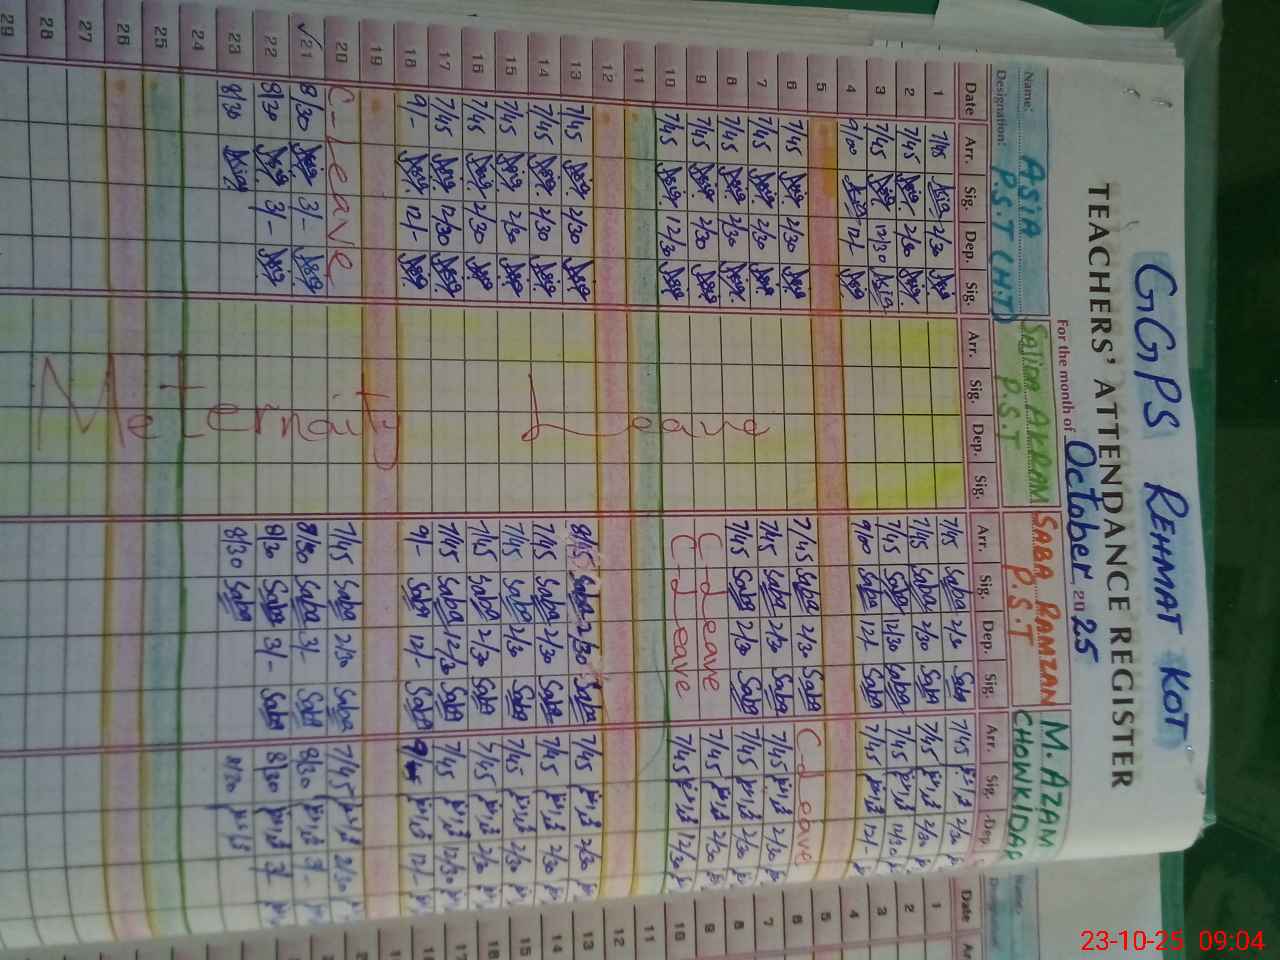 GGPS REHMAT KOT
TEACHERS' ATTENDANCE REGISTER
For the month of October 2025
Name: ASIA SALIHA AKRAM SABA RAMZAN M. AZAM
Designation: P.S.T (H.T) P.S.T P.S.T CHOWKIDAR
Date Arr. Sig. Dep. Sig. Arr. Sig. Dep. Sig. Arr. Sig. Dep. Sig. Arr. Sig. Dep.
1 7/45 Asia 2/30 Asia 7/45 Saba 2/30 Saba 7/45 2/30
2 7/45 Asia 2/30 Asia 7/45 Saba 2/30 Saba 7/45 2/30
3 7/45 Asia 12/30 Asia 7/45 Saba 12/30 Saba 7/45 12/30
4 9/00 Asia 12/- Asia 9/00 Saba 12/- Saba 7/45 12/-
5
6 7/45 Asia 2/30 Asia 7/45 Saba 2/30 Saba C-Leave
7 7/45 Asia 2/30 Asia 7/45 Saba 2/30 Saba 7/45 2/30
8 7/45 Asia 2/30 Asia 7/45 Saba 2/30 Saba 7/45 2/30
9 7/45 Asia 2/30 Asia C-Leave 7/45 2/30
10 7/45 Asia 12/30 Asia C-Leave 7/45 12/30
11
12
13 7/45 Asia 2/30 Asia 8/45 Saba 2/30 Saba 7/45 2/30
14 7/45 Asia 2/30 Asia 7/45 Saba 2/30 Saba 7/45 2/30
15 7/45 Asia 2/30 Asia 7/45 Saba 2/30 Saba 7/45 2/30
16 7/45 Asia 2/30 Asia 7/45 Saba 2/30 Saba 7/45 2/30
17 7/45 Asia 12/30 Asia 7/45 Saba 12/30 Saba 7/45 12/30
18 9/- Asia 12/- Asia 9/- Saba 12/- Saba 12/-
19
20 C-Leave 7/45 Saba 2/30 Saba 7/45 2/30
21 8/30 Asia 3/- Asia 8/30 Saba 3/- Saba 8/30 3/-
22 8/30 Asia 3/- Asia 8/30 Saba 3/- Saba 8/30 3/-
23 8/30 Asia 8/30 Saba 8/30
24
25
26
27
28
29
Meternaity Leave
Date
Name:
Designation:
1
2
3
4
5
6
7
8
9
10
11
12
13
14
15
16
17
18
23-10-25 09:04